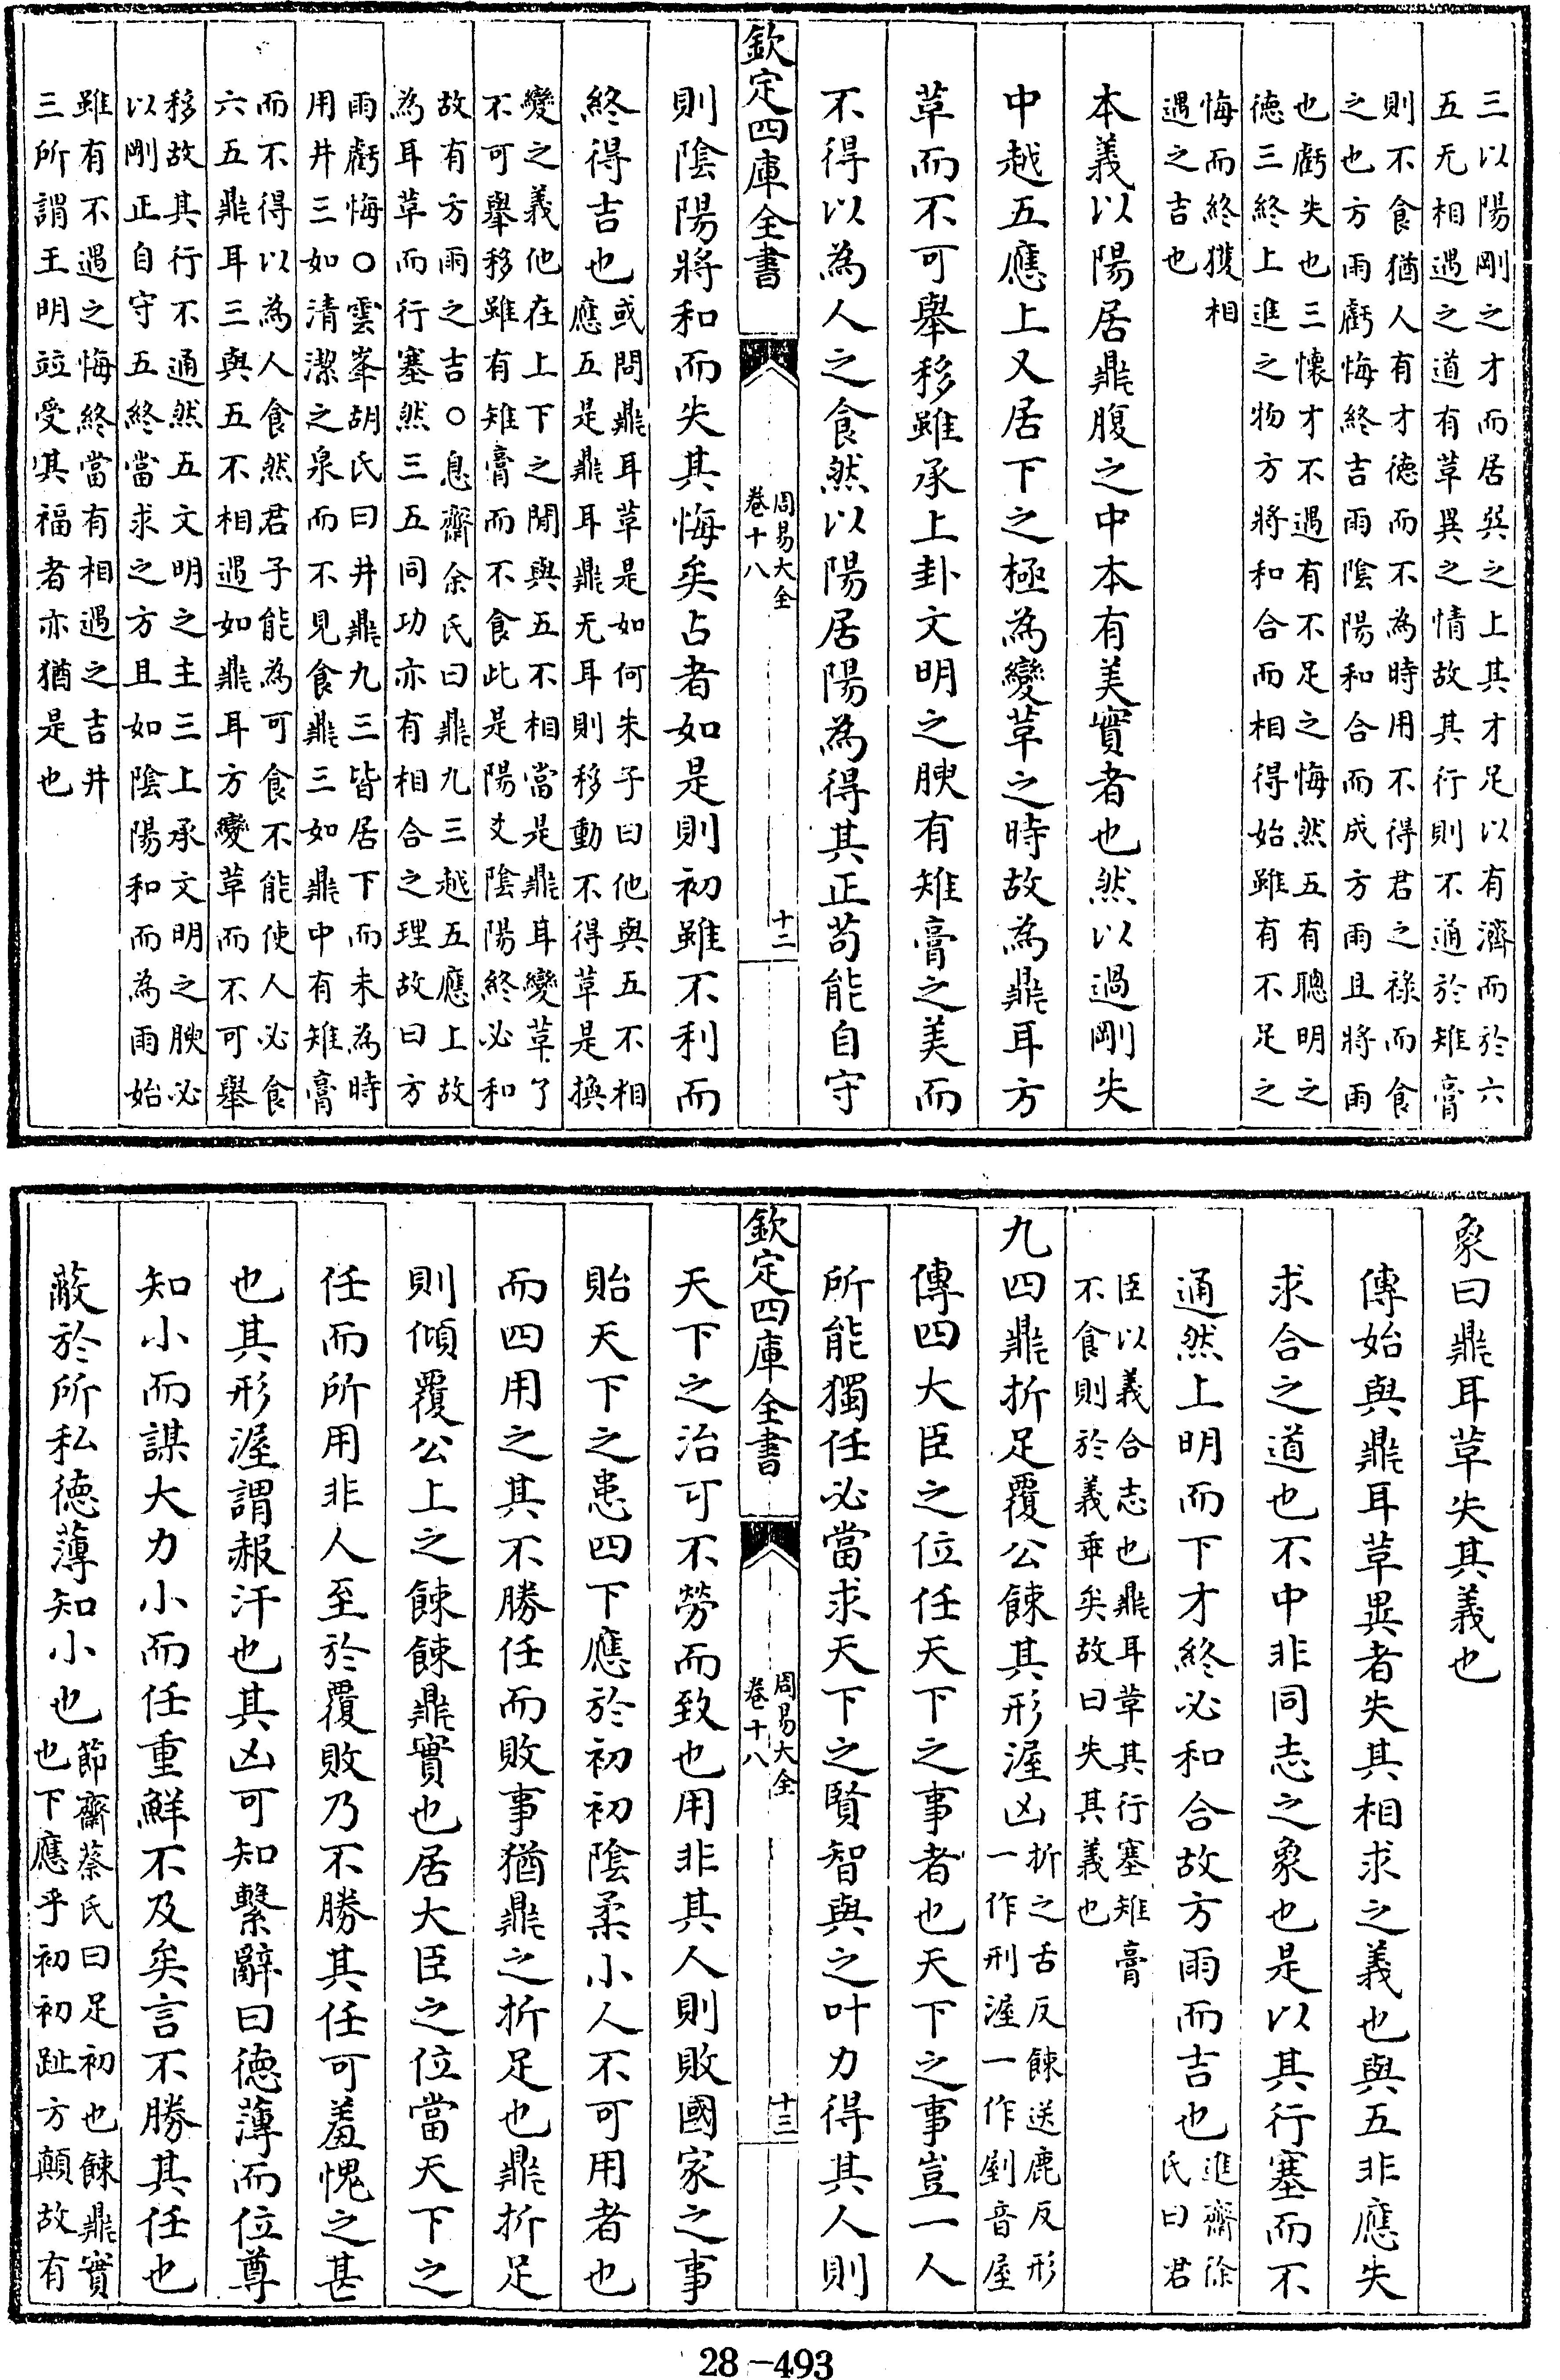 三以陽剛之才而居巽之上其才足以有濟而於六
五无相遇之道有革異之情故其行則不通於雉膏
則不食猶人有才德而不為時用不得君之祿而食
之也方雨虧悔終吉雨陰陽和合而成方雨且將雨
也虧失也三懷才不遇有不足之悔然五有聰明之
德三終上進之物方將和合而相得始雖有不足之
悔而終獲相
遇之吉也
本義以陽居鼎腹之中本有美實者也然以過剛失
中越五應上又居下之極為變革之時故為鼎耳方
革而不可舉移雖承上卦文明之腴有雉膏之美而
不得以為人之食然以陽居陽為得其正苟能自守
欽定四庫全書
周易大全
卷十八
十二
則陰陽將和而失其悔矣占者如是則初雖不利而
終得吉也
或問鼎耳革是如何朱子曰他與五不相
應五是鼎耳鼎无耳則移動不得革是換
變之義他在上下之閒與五不相當是鼎耳變革了
不可舉移雖有雉膏而不食此是陽爻陰陽終必和
故有方雨之吉○息齋余氏曰鼎九三越五應上故
為耳革而行塞然三五同功亦有相合之理故曰方
雨虧悔○雲峯胡氏曰井鼎九三皆居下而未為時
用井三如清潔之泉而不見食鼎三如鼎中有雉膏
而不得以為人食然君子能為可食不能使人必食
六五鼎耳三與五不相遇如鼎耳方變革而不可舉
移故其行不通然五文明之主三上承文明之腴必
以剛正自守五終當求之方且如陰陽和而為雨始
雖有不遇之悔終當有相遇之吉井
三所謂王明竝受其福者亦猶是也
象曰鼎耳革失其義也
傳始與鼎耳革異者失其相求之義也與五非應失
求合之道也不中非同志之象也是以其行塞而不
通然上明而下才終必和合故方雨而吉也
進齋徐
氏曰君
臣以義合志也鼎耳革其行塞雉膏
不食則於義乖矣故曰失其義也
九四鼎折足覆公餗其形渥凶
折之舌反餗送鹿反形
一作刑渥一作剭音屋
傳四大臣之位任天下之事者也天下之事豈一人
所能獨任必當求天下之賢智與之叶力得其人則
欽定四庫全書
周易大全
卷十八
十三
天下之治可不勞而致也用非其人則敗國家之事
貽天下之患四下應於初初陰柔小人不可用者也
而四用之其不勝任而敗事猶鼎之折足也鼎折足
則傾覆公上之餗餗鼎實也居大臣之位當天下之
任而所用非人至於覆敗乃不勝其任可羞愧之甚
也其形渥謂赧汗也其凶可知繫辭曰德薄而位尊
知小而謀大力小而任重鮮不及矣言不勝其任也
蔽於所私德薄知小也
節齋蔡氏曰足初也餗鼎實
也下應乎初初趾方顛故有
28-493